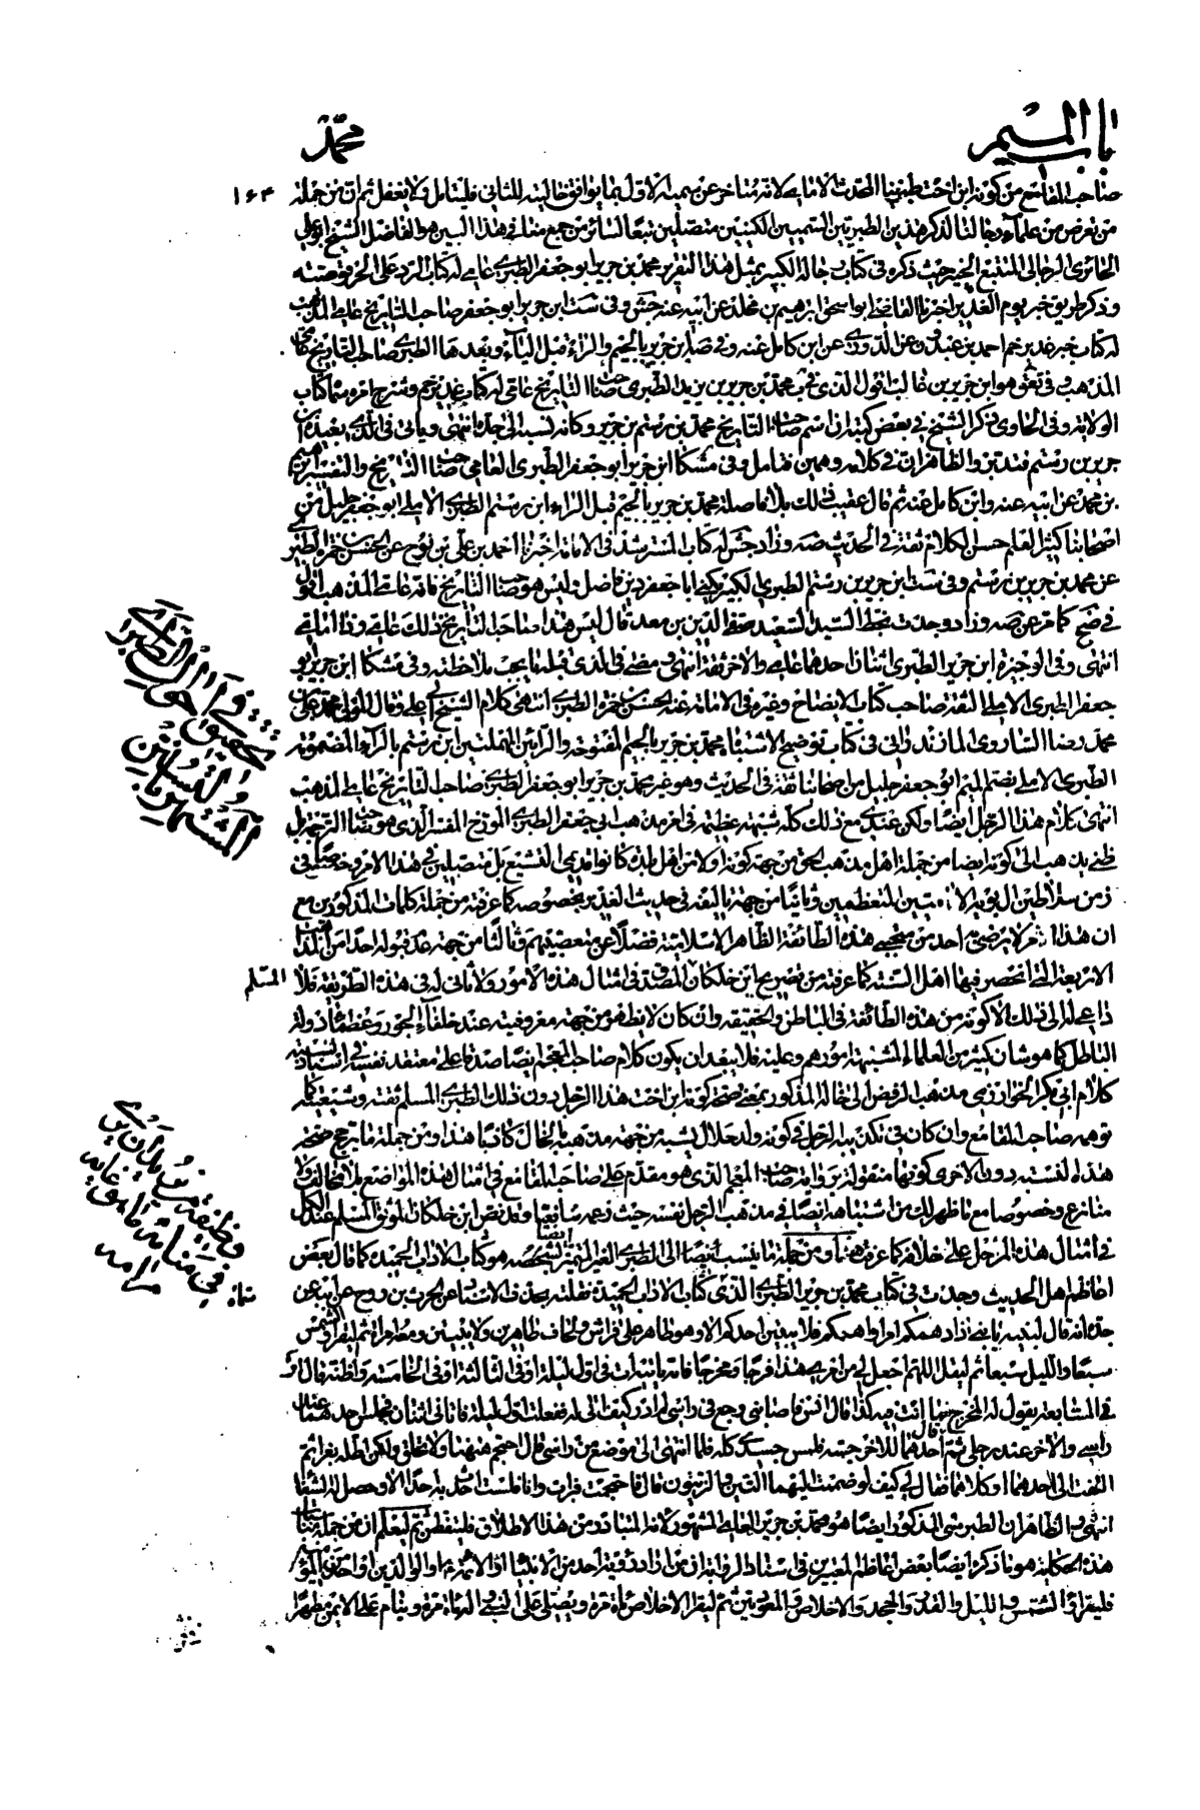 باب الميم
محمد
١٦٣
صاحب المقامع من كونه ابن اخت طبرينا المحدث الامامي لانه متاخر عن سميه الاول بما يوافق خاليته للثاني فليتامل ولا يغفل ثم ان من جملة
من تعرض من علماء رجالنا لذكر هذين الطبريين السميين الكنيين متصلين تبعا لسائر من جمع منا في هذا البين هو الفاضل الشيخ ابو علي
الحائري الرجالي المتتبع الخبير حيث ذكره في كتاب رجاله الكبير بمثل هذا التقرير محمد بن جرير ابو جعفر الطبري عامي له كتاب الرد على الحرقوصية
وذكر طريق خبر يوم الغدير اخبرنا القاضي ابو اسحق ابرهيم بن مخلد عن ابيه عنه جش وفي ست ابن جرير ابو جعفر صاحب التاريخ عامي المذهب
له كتاب خبر غدير خم احمد بن عبدون عن الدوري عن ابن كامل عنه وفي صه ابن جرير بالجيم والراء قبل الياء وبعدها الطبري صاحب التاريخ عامي
المذهب وفي تعق هو ابن جرير بن غالب اقول الذي في ب محمد بن جرير بن يزيد الطبري صاحب التاريخ عامي له كتاب غدير خم وشرح امره سماه كتاب
الولاية وفي الحاوي ذكر الشيخ في بعض كتبه ان اسم صاحب التاريخ محمد بن رستم بن جرير وكانه نسب الى جده انتهى وياتي في الذي بعيده ابن
جرير بن رستم فتدبر والظاهر ان في كلامه وهمين فتامل وفي مشكا ابن جرير ابو جعفر الطبري العامي صاحب التاريخ والتفسير ابرهيم
بن محمد عن ابيه عنه وابن كامل عنه ثم قال عقيب ذلك بلا فاصلة محمد بن جرير بالجيم قبل الراء ابن رستم الطبري الاملي ابو جعفر جليل من
اصحابنا كثير العلم حسن الكلام ثقة في الحديث صه وزاد جش له كتاب المسترشد في الامامة اخبرنا احمد بن علي بن نوح عن الحسن بن حمزة الطبري
عن محمد بن جرير بن رستم وفي ست ابن جرير بن رستم الطبري الكبير يكنى ابا جعفر دين فاضل وليس هو صاحب التاريخ فانه عامي المذهب اقول
في ضح كما مر عن صه وزاد وجدت بخط السيد السعيد صفي الدين بن معد قال ليس هذا صاحب التاريخ ذلك عامي وهذا امامي
انتهى وفي الوجيزة ابن جرير الطبري اثنان احدهما عامي والاخر ثقة انتهى ومضى في الذي قبله ما يجب ملاحظته وفي مشكا ابن جرير ابو
جعفر الطبري الاملي الثقة صاحب كتاب الايضاح وغيره في الامامة عنه الحسن بن حمزة الطبري انتهى كلام الشيخ ابي علي وقال المولى محمد علي بن
محمد رضا الساروي المازندراني في كتاب توضيح الاشتباه محمد بن جرير بالجيم المفتوحة والرائين المهملتين ابن رستم بالراء المضمومة
الطبري الاملي بضم الميم ابو جعفر جليل من اصحابنا ثقة في الحديث وهو غير محمد بن جرير ابو جعفر الطبري صاحب التاريخ عامي المذهب
انتهى كلام هذا الرجل ايضا ولكن عندي مع ذلك كله شبهة عظيمة في امر مذهب ابي جعفر الطبري المورخ المفسر الذي هو صاحب الترجمة بل
ظني يذهب الى كونه ايضا من جملة اهل مذهب الحق من جهة كونه اولا من اهل بلدة كانوا قديمي التشيع بل متصلبين في هذا الامر وخصوصا في
زمن سلاطين ال بويه الاماميين المتعظمين وثانيا من جهة تاليفه في حديث الغدير بخصوصه كما عرفته من جملة كلمات المذكورين مع
ان هذا امر لا يرضى به احد من هذه الطائفة الظاهر الاسلامية فضلا عن متعصبيهم وثالثا من جهة عدم قبوله احدا من المذاهب
الاربعة التي انحصر فيها اهل السنة كما عرفته من تصريح ابن خلكان المصدق في امثال هذه الامور ولا ثاني له في هذه الطريقة فلا
المسلم
داعي له الى ذلك الا كونه من هذه الطائفة في الباطن والحقيقة وان كان لا يظهر من جهة معروفيته عند خلفاء الجور وعظماء دولة
الباطل كما هو شان كثير من العلماء المشتبهة امورهم وعليه فلا يبعد ان يكون كلام صاحب المعجم ايضا صدقا على معتقد نفسه في استناده نسبة
كلام ابي بكر الخوارزمي مذهب الرفض الى خاله المذكور بمعنى صحة كونه ابن اخت هذا الرجل دون ذلك الطبري المسلم ثقته وشيعيته كما
توهمه صاحب المقامع وان كان في تكذيبه الرجل في كونه ولد حلال يشبه من جهة مذهبه بالخال كاذبا هذا ومن جملة ما يرجح صحة
هذه النسبة دون الاخرى كونها منقولة بروايته صاحب المعجم الذي هو مقدم على صاحب المقامع في امثال هذه المواضع بلا مخالف ولا
منازع وخصوصا مع ما ظهر لك من اشتباهه ايضا في مذهب الرجل نفسه حيث زعمه سابقيا وقد نص ابن خلكان الموثق المسلم عند الكل
في امثال هذه المرحل على خلافه كما عرفته هنا ومن جملة ما ينسب ايضا الى الطبري الغير المتميز لشخصه هو كتاب الاداب الحميدة كما قال بعض
اعاظم اهل الحديث وجدت في كتاب محمد بن جرير الطبري الذي كتاب الاداب الحميدة نقلته بحذف الاسناد عن الحرث بن روح عن ابيه عن
جده انه قال لبنيه يا بني اذا دهمكم امر او اهمكم فلا يبيتن احدكم الا وهو طاهر على فراش ولحاف طاهرين ولا يبيتن ومعه امراة ثم ليقرا والشمس
سبعا والليل سبعا ثم ليقل اللهم اجعل لي من امري هذا فرجا ومخرجا فانه ياتيه ات في اول ليلة او في الثالثة او في الخامسة واظنه قال او
في السابعة يقول له المخرج مما انت فيه كذا قال انس فاصابني وجع في راسي لم ادر كيف اتى له ففعلت اول ليلة فاتاني اثنان فجلس احدهما عند
راسي والاخر عند رجلي ثم قال احدهما للاخر جسه فلمس جسدي كله فلما انتهى الى موضع من راسي قال احتجم ههنا ولا تحلق ولكن اطله بغراء ثم
التفت الي احدهما او كلاهما فقال لي كيف لو ضممت اليهما التين والزيتون قال فاحتجمت فبرات وانا فلست احدث به احدا الا وحصل له الشفا
انتهى والظاهر ان الطبرسي المذكور ايضا هو محمد بن جرير العامي المشهور لانه المتبادر من هذا الاطلاق فليتفطن ثم ليعلم ان من جملة مناسبات
هذه الحكاية هو ما ذكره ايضا بعض اعاظم المعتبرين في اسناد الرواية ان من اراد رؤية احد من الانبياء او الائمة او الوالدين او احد غيرهم
فليقرا والشمس والليل والقدر والجحد والاخلاص والمعوذتين ثم ليقرا الاخلاص مأة مرة ويصلي على النبي واله مأة مرة وينام على الايمن متطهرا
في احوال الطبري